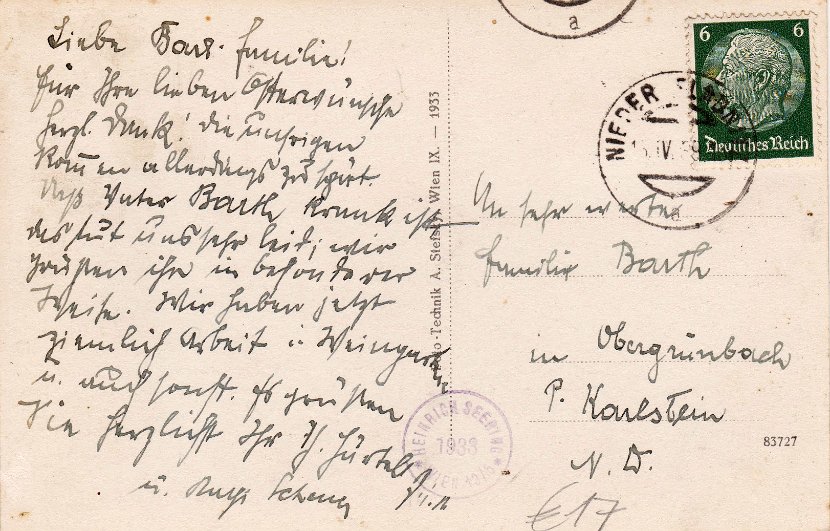 Liebe Bart-Familie!
Für Ihre lieben Osterwünsche
herzl. Dank! Die unsrigen
kommen allerdings zu spät.
Daß Vater Barth krank ist
das tut uns sehr leid; wir
grüßen ihn in besonderer
Weise. Wir haben jetzt
ziemlich Arbeit i. Weingarten
u. auch sonst. Es grüßen
Sie herzlichst Ihr
u.
Wien IX. — 1933
6 6
Deutsches Reich
NIEDER
IV
a
a
An sehr werte
Familie Barth
in Obergrünbach
P. Karlstein
N. D.
83727
HEINRICH SEERING
1933
€17